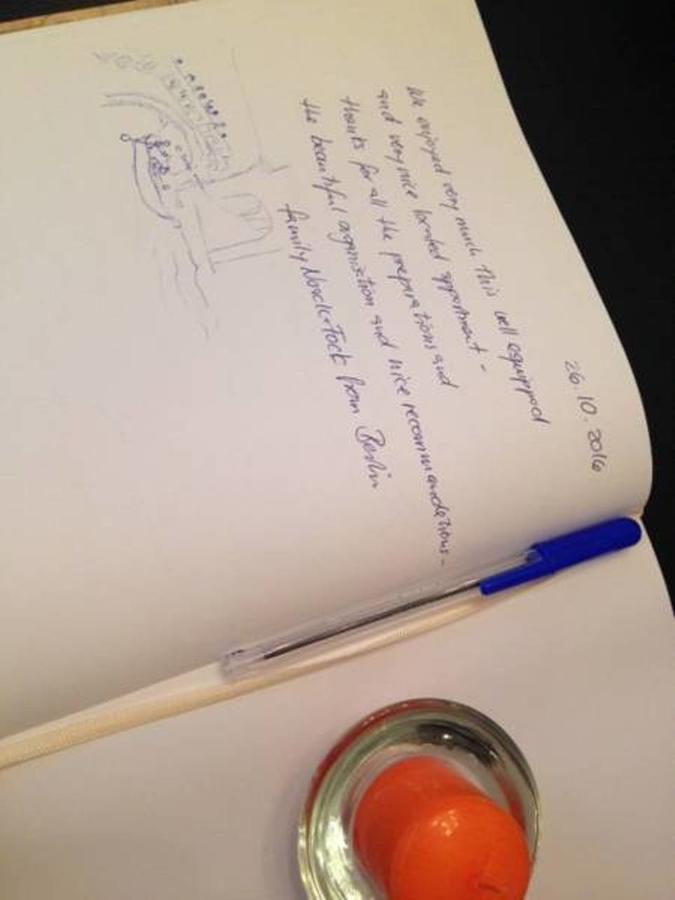 26.10.2016
We enjoyed very much this well equipped
and very nice located appartment -
thanks for all the preparations and
the beautiful organisation and nice recommandations -
family from Berlin